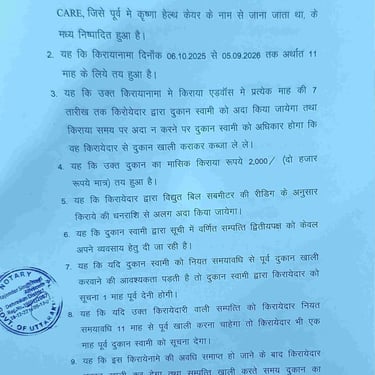 CARE, जिसे पूर्व मे कृष्णा हेल्थ केयर के नाम से जाना जाता था, के
मध्य निष्पादित हुआ है।
2. यह कि किरायानामा दिनाँक 06.10.2025 से 05.09.2026 तक अर्थात 11
माह के लिये तय हुआ है।
3. यह कि उक्त किरायानामा मे किराया एडवाँस में प्रत्येक माह की 7
तारीख तक किरोयेदार द्वारा दुकान स्वामी को अदा किया जायेगा तथा
किराया समय पर अदा न करने पर दुकान स्वामी को अधिकार होगा कि
वह किरायेदार से दुकान खाली कराकर कब्जा ले ले।
4. यह कि उक्त दुकान का मासिक किराया रूपये 2,000/ (दो हजार
रूपये मात्र) तय हुआ है।
5. यह कि किरायेदार द्वारा विद्युत बिल सबमीटर की रीडिंग के अनुसार
किराये की धनराशि से अलग अदा किया जायेगा।
6. यह कि दुकान स्वामी द्वारा सूची में वर्णित सम्पत्ति द्वितीयपक्ष को केवल
अपने व्यवसाय हेतु दी जा रही है।
7. यह कि यदि दुकान स्वामी को नियत समयावधि से पूर्व दुकान खाली
करवाने की आवश्यकता पड़ती है तो दुकान स्वामी द्वारा किरायेदार को
सूचना 1 माह पूर्व देनी होगी।
8. यह कि यदि उक्त किरायेदारी वाली सम्पत्ति को किरायेदार नियत
समयावधि 11 माह से पूर्व खाली करना चाहेगा तो किरायेदार भी एक
माह पूर्व दुकान स्वामी को सूचना देगा।
9. यह कि इस किरायेनामे की अवधि समाप्त हो जाने के बाद किरायेदार
खाली कर देगा तथा सम्पत्ति खाली करते समय दुकान का
NOTARY